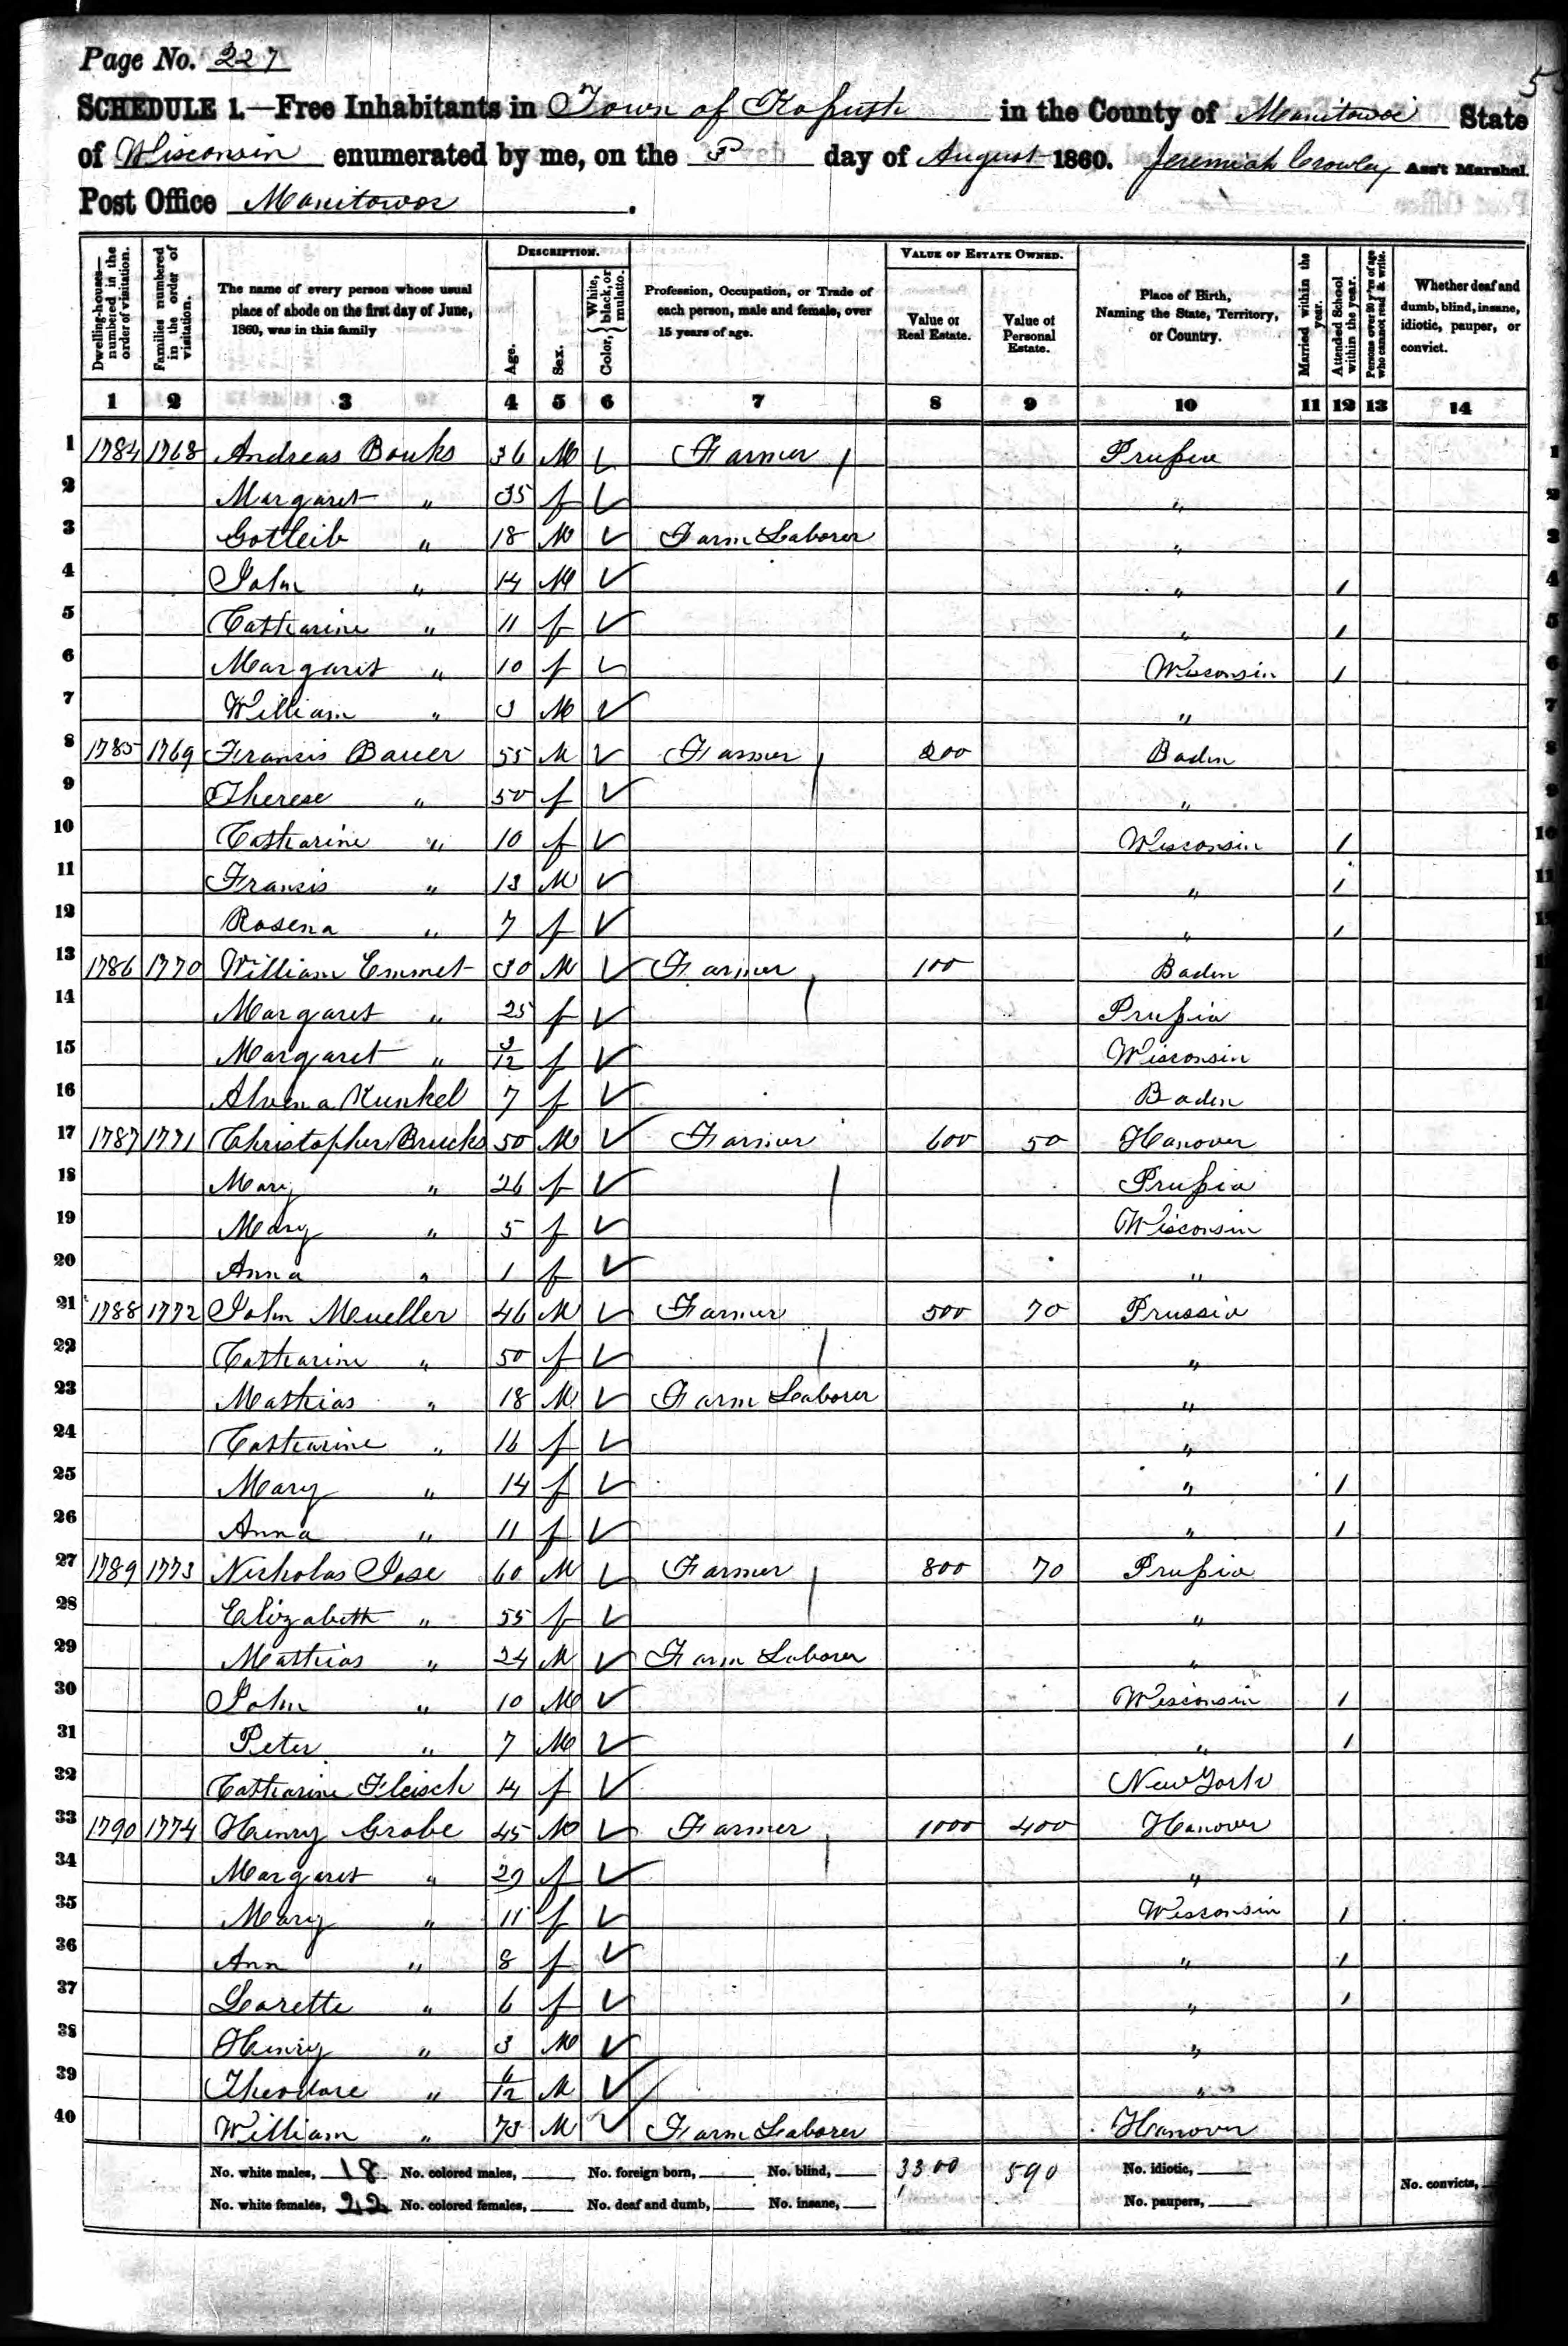 Page No. 227
5
SCHEDULE 1.—Free Inhabitants in Town of Kossuth in the County of Manitowoc State
of Wisconsin enumerated by me, on the 3 day of August 1860. Jeremiah Crowley Ass't Marshal.
Post Office Manitowoc.
Dwelling-houses—numbered in the order of visitation.
Families numbered in the order of visitation.
The name of every person whose usual place of abode on the first day of June, 1860, was in this family
DESCRIPTION.
Age.
Sex.
Color, White, black, or mulatto.
Profession, Occupation, or Trade of each person, male and female, over 15 years of age.
VALUE OF ESTATE OWNED.
Value of Real Estate.
Value of Personal Estate.
Place of Birth, Naming the State, Territory, or Country.
Married within the year.
Attended School within the year.
Persons over 20 y'rs of age who cannot read & write.
Whether deaf and dumb, blind, insane, idiotic, pauper, or convict.
1 2 3 4 5 6 7 8 9 10 11 12 13 14
1 1784 1768 Andreas Bouks 36 M Farmer Prussia 1
2 Margaret " 35 f " 2
3 Gotleib " 18 M Farm Laborer " 3
4 John " 14 M " / 4
5 Catharine " 11 f " / 5
6 Margaret " 10 f Wisconsin / 6
7 William " 3 M " 7
8 1785 1769 Francis Bauer 55 M Farmer 200 Baden 8
9 Therese " 50 f " 9
10 Catharine " 10 f Wisconsin / 10
11 Francis " 13 M " / 11
12 Rosena " 7 f " /
13 1786 1770 William Emmet 30 M Farmer 100 Baden
14 Margaret " 25 f Prussia
15 Margaret " 3/12 f Wisconsin
16 Alvena Kunkel 7 f Baden
17 1787 1771 Christopher Brucks 50 M Farmer 600 50 Hanover
18 Mary " 26 f Prussia
19 Mary " 5 f Wisconsin
20 Anna " 1 f "
21 1788 1772 John Mueller 46 M Farmer 500 70 Prussia
22 Catharine " 50 f "
23 Mathias " 18 M Farm Laborer "
24 Catharine " 16 f "
25 Mary " 14 f " /
26 Anna " 11 f " /
27 1789 1773 Nicholas Jose 60 M Farmer 800 70 Prussia
28 Elizabeth " 55 f "
29 Mathias " 24 M Farm Laborer "
30 John " 10 M Wisconsin /
31 Peter " 7 M " /
32 Catharine Fleisch 14 f New York
33 1790 1774 Henry Grobe 45 M Farmer 1000 400 Hanover
34 Margaret " 29 f "
35 Mary " 11 f Wisconsin /
36 Ann " 8 f " /
37 Larette " 6 f " /
38 Henry " 3 M "
39 Theodore " /12 M "
40 William " 73 M Farm Laborer Hanover
No. white males, 18 No. colored males, No. foreign born, No. blind, 3300 590 No. idiotic,
No. white females, 22 No. colored females, No. deaf and dumb, No. insane, No. paupers, No. convicts,